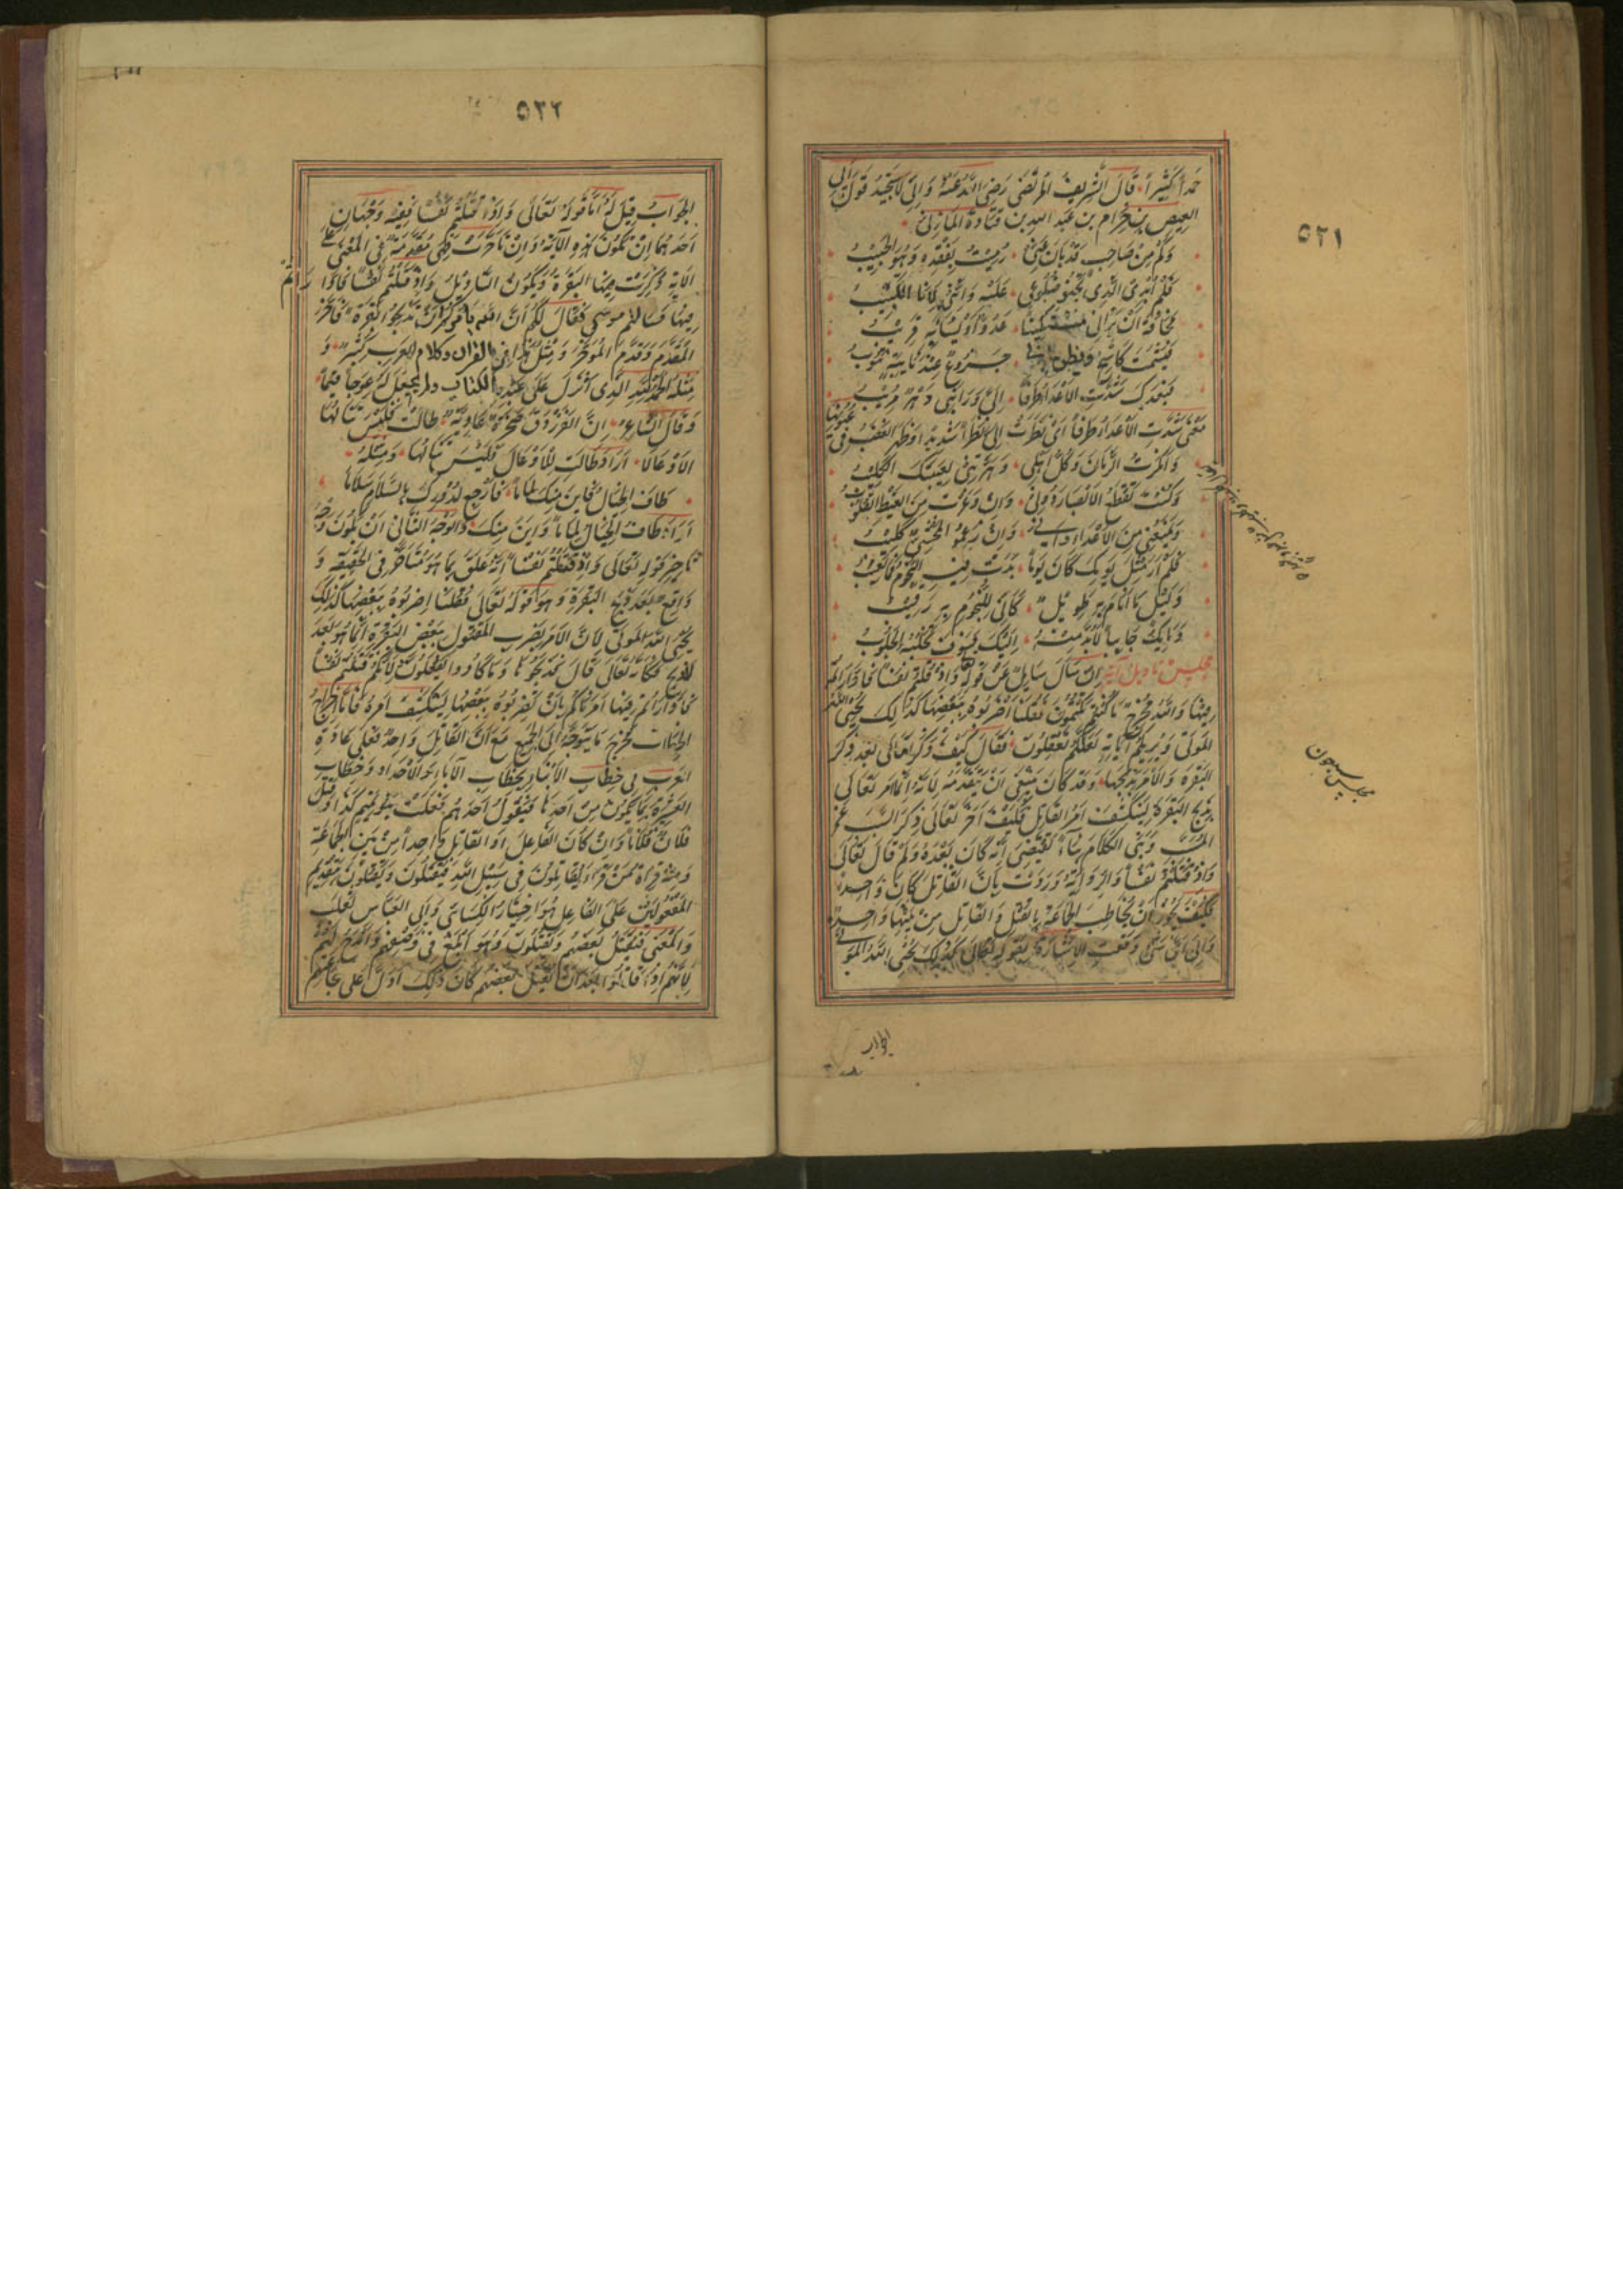 ٥٢١
حمداً كثيراً قال الشريف المرتضى رضي الله عنه واني لاستجيد قول ابي
العيص بن حزام بن عبد الله بن قتادة المازني
وكم من صاحب قد بان عني رميت بفقده وهو الحبيب
فلم ابد الذي تحنو ضلوعي عليه وانني لانا الكئيب
مخافة ان يراني مستكينا عدو او يساء به قريب
فيشمت كاشح ويظن اني جزوع عند نايبة تنوب
فبعدك شدت الاعداء طرفا الي ورابني دهر مريب
معنى شدت الاعداء طرفا اي نظرت الي نظرا شديدا وظهر الغضب في عيونها
وانكرت الزمان وكل اهلي وهرتني لغيبتك الكليب
وكنت تقطع الابصار دوني وان وغرت من الغيظ القلوب
ويمنعني من الاعداء اني وان رغموا لمخشي مهيب
فلم ار مثل يومك كان يوما بدت فيه النجوم فما تغيب
وليل ما انام به طويل كاني للنجوم به رقيب
وما يك جائيا لا بد منه اليك فسوف تجلبه الجلوب
مجلس تاويل آية ان سال سايل عن قوله واذ قتلتم نفسا فاداراتم
فيها والله مخرج ما كنتم تكتمون فقلنا اضربوه ببعضها كذلك يحيي الله
الموتى ويريكم آياته لعلكم تعقلون فقال كيف ذكر تعالى بعد ذكر
البقرة والامر بذبحها وقد كان ينبغي ان يتقدمه لانه انما امر تعالى
بذبح البقرة لينكشف امر القاتل فكيف اخر تعالى ذكر السبب عن
المسبب وبنى الكلام بناء يقتضي انه كان بعده ولم قال تعالى
واذ قتلتم نفسا والرواية وردت بان القاتل كان واحدا
فكيف يجوز ان يخاطب الجماعة بالقتل والقاتل من بينها واحد
والى اي شيء وقعت الاشارة بقوله تعالى كذلك يحيي الله الموتى
مجلس سبعون
الجواب
٥٢٢
الجواب قيل له اما قوله تعالى واذ قتلتم نفسا ففيه وجهان
احدهما ان تكون هذه الآية وان تاخرت فهي مقدمة في المعنى على
الآية ذكرت فيها البقرة ويكون التاويل واذ قتلتم نفسا فادا راتم
فيها فسالتم موسى فقال لكم ان الله يامركم ان تذبحوا بقرة فاخر
المقدم وقدم المؤخر ومثل هذا في القرآن وكلام العرب كثير و
مثله الحمد لله الذي انزل على عبده الكتاب ولم يجعل له عوجا قيما
وقال الشاعر ان الفرزدق صخرة عادية طالت فليس تنالها
الاوعالا اراد طالت الاوعال فليس تنالها ومثله
طاف الخيال فاين منك لماما فارجع لزورك بالسلام سلاما
اراد طاف الخيال لماما واين منك والوجه الثاني ان يكون وجه
تاخير قوله تعالى واذ قتلتم نفسا انه علق بما هو متاخر في الحقيقة و
واقع بعد ذبح البقرة وهو قوله تعالى فقلنا اضربوه ببعضها كذلك
يحيي الله الموتى لان الامر بضرب المقتول ببعض البقرة انما هو بعد
الذبح فكانه تعالى قال فذبحوها وما كادوا يفعلون لانكم قتلتم نفسا
فاداراتم فيها امرناكم بان تضربوه ببعضها لينكشف امره فاما اخراج
الخطاب مخرج ما يتوجه الى الجمع مع ان القاتل واحد فعلى عادة
العرب في خطاب الابناء بخطاب الآباء والاجداد وخطاب
العشيرة بما يكون من احدها فيقول احدهم فعلت بنو تميم كذا وقتل
فلان فلانا وان كان الفاعل او القاتل واحدا من بين الجماعة
ومنه قراءة من قرا يقاتلون في سبيل الله فيقتلون ويقتلون بتقديم
المفعولين على الفاعل هو اختيار الكسائي وابي العباس ثعلب
والمعنى فيقتل بعضهم ويقتلون وهو ابلغ في وصفهم وامدح لهم
لانهم اذا قاتلوا بعد ان يقتل بعضهم كان ذلك ادل على شجاعتهم